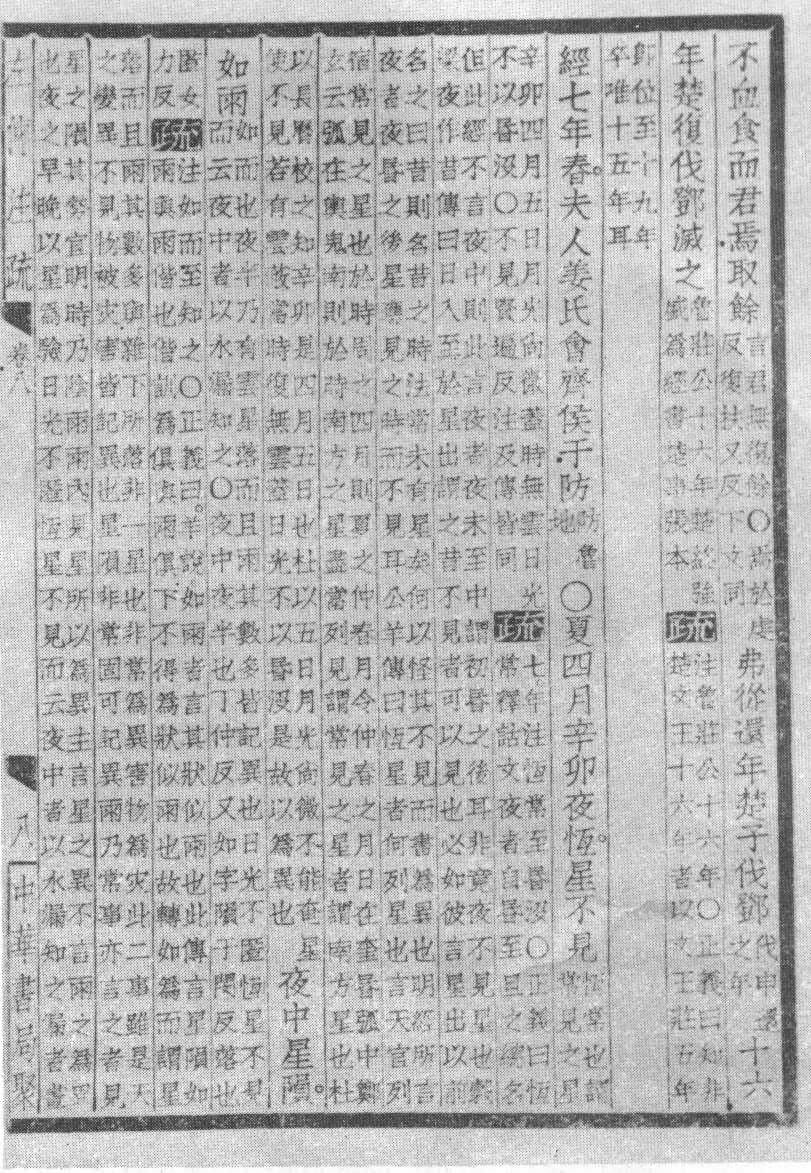 不血食而君焉取餘言君無復餘〇焉於虔反復扶又反下文同弗從還年楚子伐鄧伐申還之年十六
年楚復伐鄧滅之魯莊公十六年楚終強盛為經書楚事張本疏注魯莊公十六年〇正義曰知非楚文王十六年者以文王莊五年
卽位至十九年卒唯十五年耳
經七年春夫人姜氏會齊侯于防防魯地〇夏四月辛卯夜恆星不見恆常也謂常見之星
辛卯四月五日月光尚微蓋時無雲日光不以昏沒〇不見賢遍反注及傳皆同疏七年注恆常至昏沒〇正義曰恆常釋詁文夜者自昏至旦之總名
但此經不言夜中則此言夜者夜未至中謂初昏之後耳非竟夜不見星也穀梁夜作昔傳曰日入至於星出謂之昔不見者可以見也必如彼言星出以前
名之曰昔則名昔之時法當未有星矣何以怪其不見而書為異也明經所言夜者夜昏之後星應見之時而不見耳公羊傳曰恆星者何列星也言天官列
宿常見之星也於時周之四月則夏之仲春月令仲春之月日在奎昏弧中鄭玄云弧在輿鬼南則於時南方之星盡當列見謂常見之星者謂南方星也杜
以長曆校之知辛卯是四月五日也杜以五日月光尚微不能奄星使不見若有雲蔽當時復無雲蓋日光不以昏沒是故以為異也夜中星隕
如雨如而也夜半乃有雲星落而且雨其數多皆記異也日光不匿恆星不見而云夜中者以水漏知之〇夜中夜半也丁仲反又如字隕于閔反落也
匿女力反疏注如而至知之〇正義曰羊說如雨者言其狀似雨也此傳言星隕如雨與雨偕也偕訓為俱與雨俱下不得為狀似雨也故轉如為而謂星
落而且雨其數多與雜下所落非一星也非常為異害物為灾此二事雖是天之變異不見物被灾害皆記異也星隕非常固可記異雨乃常事亦言之者見
星之隕其勢宜明時乃陰雨雨內見星所以為異主言星之異不言雨之為異也夜之早晚以星為驗日光不匿恆星不見而云夜中者以水漏知之漏者晝
左傳注疏 卷八 八 中華書局聚